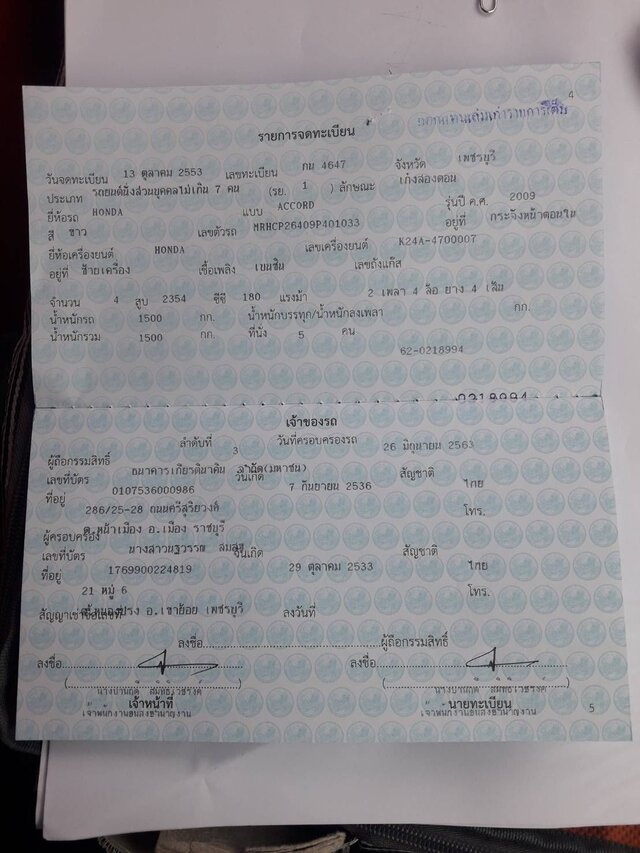 4
ออกแทนเล่มเก่ารายการเต็ม
รายการจดทะเบียน
วันจดทะเบียน 13 ตุลาคม 2553 เลขทะเบียน กน 4647 จังหวัด เพชรบุรี
ประเภท รถยนต์นั่งส่วนบุคคลไม่เกิน 7 คน (รย. 1 ) ลักษณะ เก๋งสองตอน
ยี่ห้อรถ HONDA แบบ ACCORD รุ่นปี ค.ศ. 2009
สี ขาว เลขตัวรถ MRHCP26409P401033 อยู่ที่ กระจังหน้าตอนใน
ยี่ห้อเครื่องยนต์ HONDA เลขเครื่องยนต์ K24A-4700007
อยู่ที่ ซ้ายเครื่อง เชื้อเพลิง เบนซิน เลขถังแก๊ส
จำนวน 4 สูบ 2354 ซีซี 180 แรงม้า 2 เพลา 4 ล้อ ยาง 4 เส้น
น้ำหนักรถ 1500 กก. น้ำหนักบรรทุก/น้ำหนักลงเพลา กก.
น้ำหนักรวม 1500 กก. ที่นั่ง 5 คน
62-0218994
0218994
เจ้าของรถ
ลำดับที่ 3 วันที่ครอบครองรถ 26 มิถุนายน 2563
ผู้ถือกรรมสิทธิ์ ธนาคารเกียรตินาคิน จำกัด(มหาชน)
เลขที่บัตร 0107536000986 วันเกิด 7 กันยายน 2536 สัญชาติ ไทย
ที่อยู่ 286/25-28 ถนนศรีสุริยวงศ์ โทร.
ต.หน้าเมือง อ.เมือง ราชบุรี
ผู้ครอบครอง นางสาวนฐวรรณ
เลขที่บัตร 1769900224819 วันเกิด 29 ตุลาคม 2533 สัญชาติ ไทย
ที่อยู่ 21 หมู่ 6 โทร.
อ.เขาย้อย เพชรบุรี
สัญญาเช่าซื้อเลขที่ ลงวันที่
ลงชื่อ ผู้ถือกรรมสิทธิ์
ลงชื่อ ลงชื่อ
เจ้าหน้าที่ นายทะเบียน
เจ้าพนักงานขนส่งชำนาญงาน เจ้าพนักงานขนส่งชำนาญงาน
5